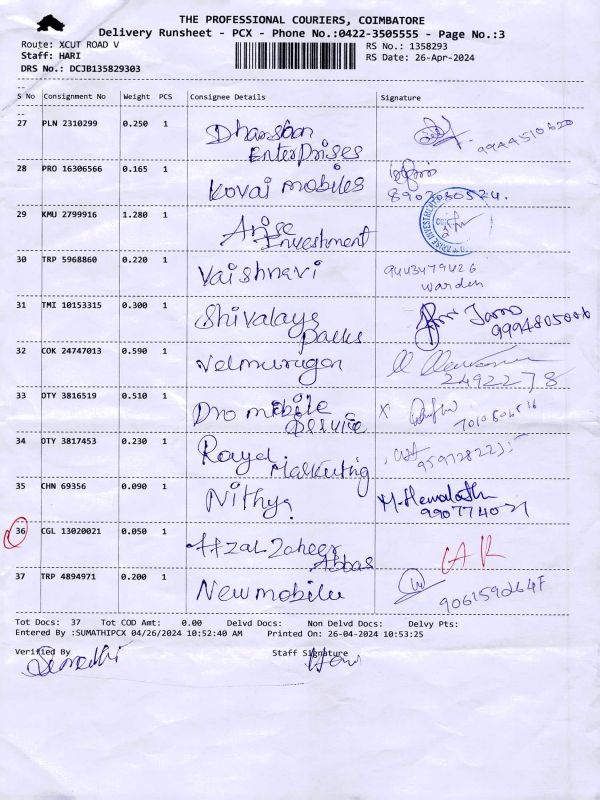 THE PROFESSIONAL COURIERS, COIMBATORE
Delivery Runsheet - PCX - Phone No.:0422-3505555 - Page No.:3
Route: XCUT ROAD V
RS No.: 1358293
Staff: HARI
RS Date: 26-Apr-2024
DRS No.: DCJB135829303
S No Consignment No Weight PCS Consignee Details Signature
27 PLN 2310299 0.250 1 Dharshan
Enterprises
28 PRO 16306566 0.165 1 Kovai mobiles
29 KMU 2799916 1.280 1 Arise
Investment
30 TRP 5968860 0.220 1 Vaishnavi 9443479426
warden
31 TMI 10153315 0.300 1 Shivalaya
packs 9994805006
32 COK 24747013 0.590 1 Velmurugan
2492278
33 OTY 3816519 0.510 1 Dro mobile
service
34 OTY 3817453 0.230 1 Royal
Marketing
35 CHN 69356 0.090 1 Nithya M. Hemalatha
36 CGL 13020021 0.050 1 Afzal Zaheer
Abbas
37 TRP 4894971 0.200 1 New mobile
Tot Docs: 37 Tot COD Amt: 0.00 Delvd Docs: Non Delvd Docs: Delvy Pts:
Entered By :SUMATHIPCX 04/26/2024 10:52:40 AM Printed On: 26-04-2024 10:53:25
Verified By Staff Signature
Hari